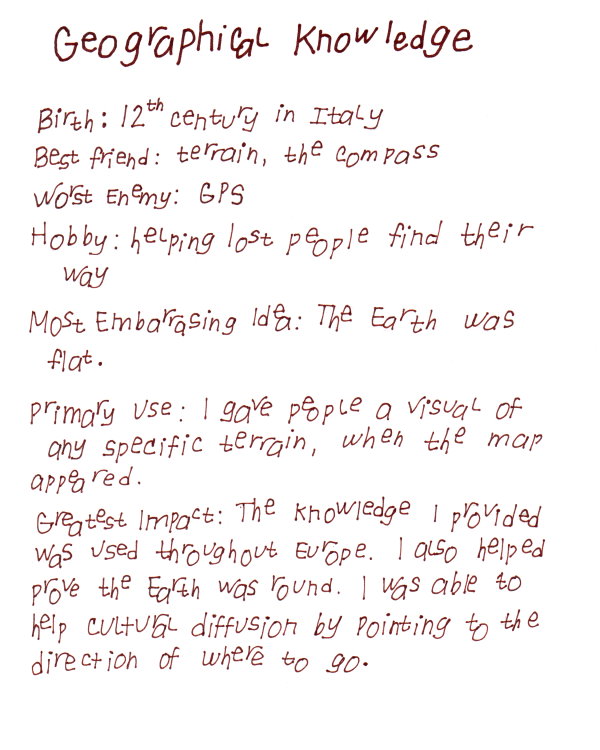 Geographical Knowledge
Birth: 12th century in Italy
Best friend: terrain, the compass
Worst Enemy: GPS
Hobby: helping lost people find their
way
Most Embarrasing Idea: The Earth was
flat.
Primary Use: I gave people a visual of
any specific terrain, when the map
appeared.
Greatest Impact: The Knowledge I provided
was used throughout Europe. I also helped
prove the Earth was round. I was able to
help cultural diffusion by pointing to the
direction of where to go.